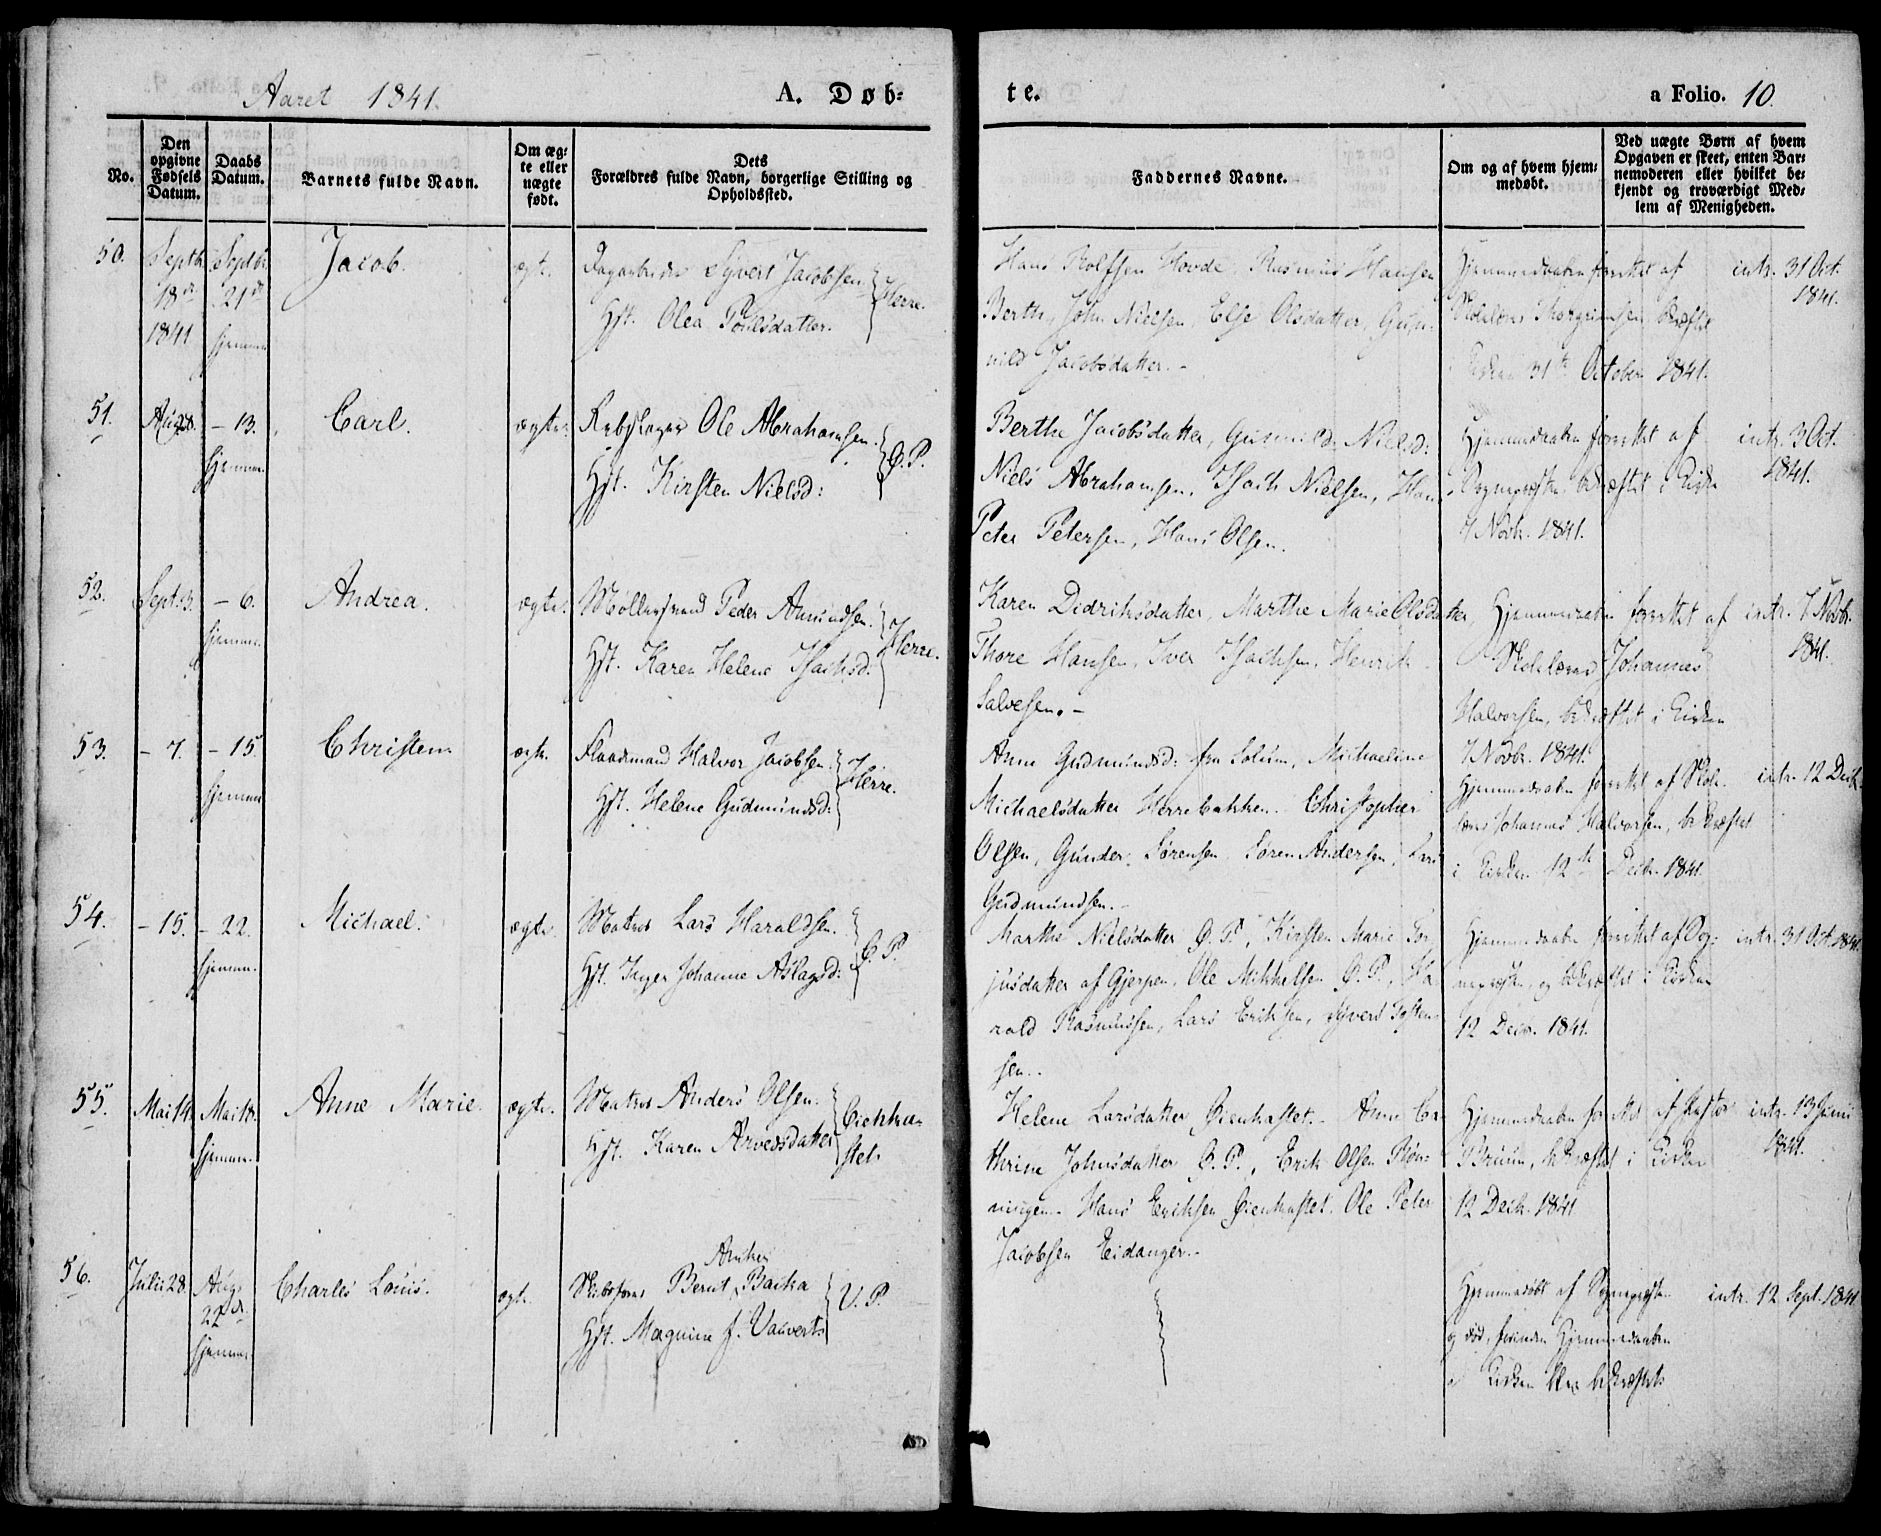 Aaret 1841.
A. Døb-
te.
a Folio. 10.
No.
Den opgivne Fødsels Datum.
Daabs Datum.
Barnets fulde Navn.
Om æg-
te eller
uægte
født.
Dets
Forældres fulde Navn, borgerlige Stilling og
Opholdssted.
Faddernes Navne.
Om og af hvem hjem-
medøbt.
Ved uægte Børn af hvem
Opgaven er skeet, enten Bar-
nemoderen eller hvilket be-
kjendt og troværdigt Med-
lem af Menigheden.
50. Septbr 18de 1841 Septbr. 21de hjemme Jacob. ægte.
Syvert Jacobsen
Hst. Olea Poulsdatter. Herre.
Hans Rolfsen Hovde, Rasmus Hansen
Berthe, John Nielsen, Else Olsdatter, Gun-
nild Jacobsdatter.-
Hjemmedaaben forrettet af
Skolelærer Thorgrimsen, bekræftet
Kirken 31te October 1841.
intr. 31 Oct.
1841.
51. Aug 28. - 13. hjemme. Carl. ægte.
Rebslager Ole Abrahamsen.
Hst. Kirsten Nielsd: Ø.P.
Berthe Jacobsdatter, Gunnild Nielsd:
Niels Abrahamsen, Isach Nielsen, Han
Peter Petersen, Hans Olsen.
Hjemmedaaben forrettet af
Sognepræsten, bekræftet i Kirken
7 Novbr. 1841.
intr. 3 Oct.
1841.
52. Sept. 3. - 6. hjemme. Andrea. ægte.
Møllersvend Peder Amundsen.
Hst. Karen Helene Isachsd: Herre.
Karen Didriksdatter, Marthe Marie Olsdatter,
Thore Hansen, Iver Isachsen, Henrik
Salvesen.-
Hjemmedaaben forrettet af
Skolelærer Johannes
Halvorsen, bekræftet i Kirken
7 Novbr. 1841.
intr. 7 Novbr.
1841.
53. - 7. - 15. hjemme Christen. ægte.
Flaademand Halvor Jacobsen.
Hst. Helene Gudmundsd: Herre.
Anne Gudmundsd: fra Solum, Michaeline
Michaelsdatter Herrebakken. Christopher
Olsen, Gunder Sørensen, Søren Andersen,
Gudmundsen.-
Hjemmedaaben forrettet af Skole-
lærer Johannes Halvorsen, bekræftet
i Kirken 12te Decbr. 1841.
intr. 12 Decbr.
54. - 15. - 22. hjemme. Michael. ægte.
Matros Lars Haraldsen.
Hst. Inger Johanne Aslagsd: Ø.P.
Marthe Nielsdatter Ø.P., Kirsten Marie Tor-
jusdatter af Gjerpen, Ole Mikkelsen Ø.P., Ha-
rald Rasmussen, Lars Eriksen, Syvert Tosten-
sen.-
Hjemmedaaben forrettet af Sog-
nepræsten, og bekræftet i Kirken
12 Decbr. 1841.
intr. 31 Oct. 1841.
55. Mai 14. Mai 18. hjemme. Anne Marie. ægte.
Matros Anders Olsen.
Hst. Karen Arvedsdatter Øienka-
stet.
Helene Larsdatter Øienkastet. Anne Ca-
thrine Johnsdatter Ø.P., Erik Olsen Røn-
ningen. Hans Eriksen Øienkastet. Ole Peter
Jacobsen Eidanger.-
Hjemmedaaben forrettet af Pastor
Bruun, bekræftet i Kirken
12 Decbr. 1841
intr. 13 Juni
1841.
56. Julii 28. Aug. 22de hjemme. Charles Louis. ægte.
Anker
Skibsfører Bernt Backa
Hst. Maguine f. Valverts V.P.
Hjemmedøbt af Sognepræsten
og død, forinden Hjemmedaaben
i Kirken blev bekræftet.
intr. 12 Sept. 1841